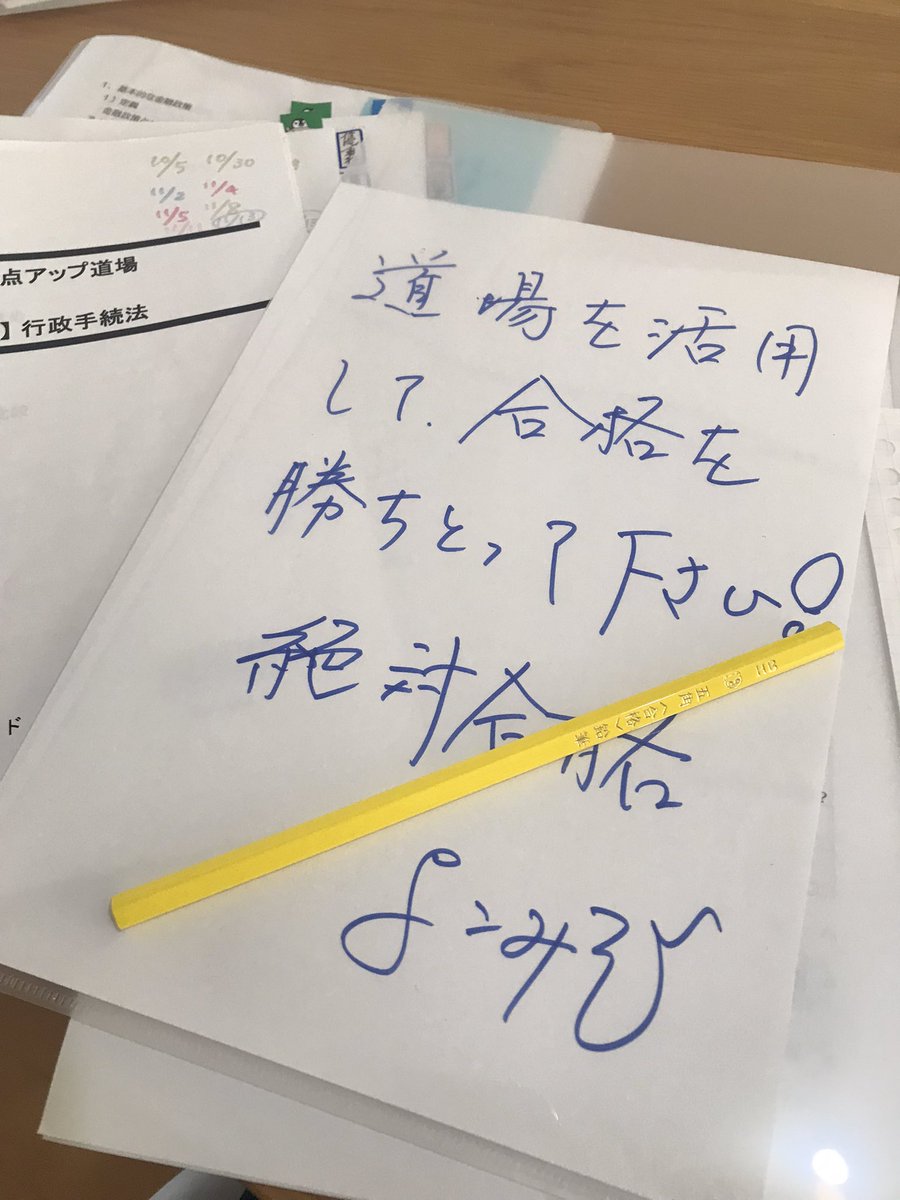 1. 基本的な金融政策
1) 定義
10/5 10/30
11/2 11/4
11/5
点アップ道場
】行政手続法
道場を活用
して、合格を
勝ちとって下さい!
絶対合格
五角〈合格〉鉛筆
ド
?